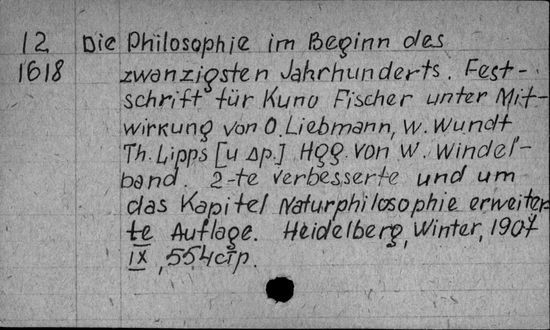 12 Die Philosophie im Beginn des
1618 zwanzigsten Jahrhunderts. Fest-
schrift für Kuno Fischer unter Mit-
wirkung von O. Liebmann, W. Wundt,
Th. Lipps [u др.] Hgg. von W. Windel-
band. 2-te verbesserte und um
das Kapitel Naturphilosophie erweiter
te Auflage. Heidelberg, Winter, 1907
IX, 554 стр.